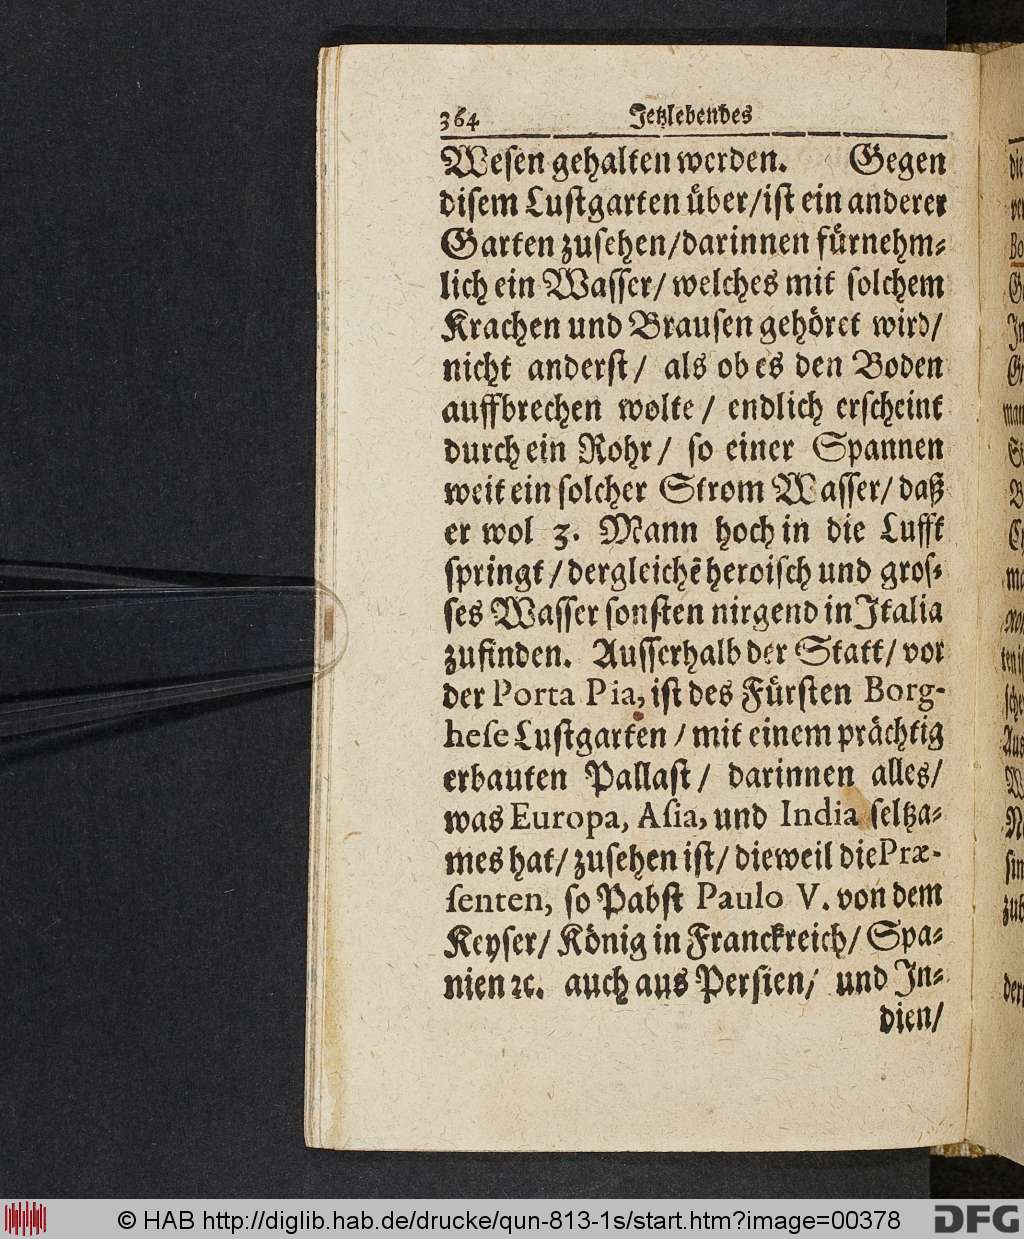 364 Jetzlebendes
Wesen gehalten werden. Gegen
disem Lustgarten über/ist ein anderer
Garten zusehen/darinnen fürnehm-
lich ein Wasser/ welches mit solchem
Krachen und Brausen gehöret wird/
nicht anderst/ als ob es den Boden
auffbrechen wolte / endlich erscheint
durch ein Rohr / so einer Spannen
weit ein solcher Strom Wasser/ daß
er wol 3. Mann hoch in die Lufft
springt / dergleichē heroisch und gros-
ses Wasser sonsten nirgend in Italia
zufinden. Ausserhalb der Statt/ vor
der Porta Pia, ist des Fürsten Borg-
hese Lustgarten / mit einem prächtig
erbauten Pallast/ darinnen alles/
was Europa, Asia, und India seltza-
mes hat/ zusehen ist/ dieweil die Præ-
senten, so Pabst Paulo V. von dem
Keyser/ König in Franckreich/ Spa-
nien ꝛc. auch aus Persien/ und In-
dien/
© HAB http://diglib.hab.de/drucke/qun-813-1s/start.htm?image=00378
DFG